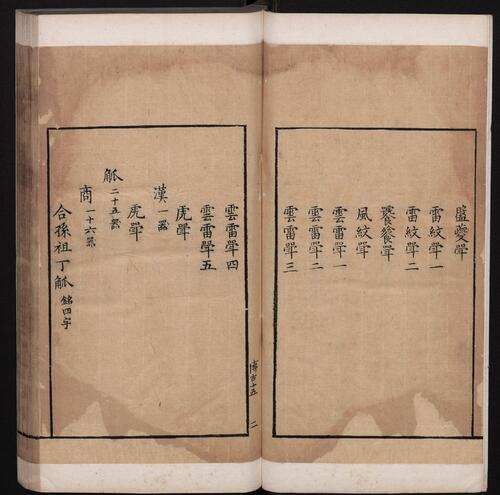 夔斝
雷紋斝一
雷紋斝二
饕餮斝
風紋斝
雲雷斝一
雲雷斝二
雲雷斝三
雲雷斝四
雲雷斝五
虎斝
漢一器
虎斝
觚二十五器
商一十六器
合孫祖丁觚銘四字
博古十五 二